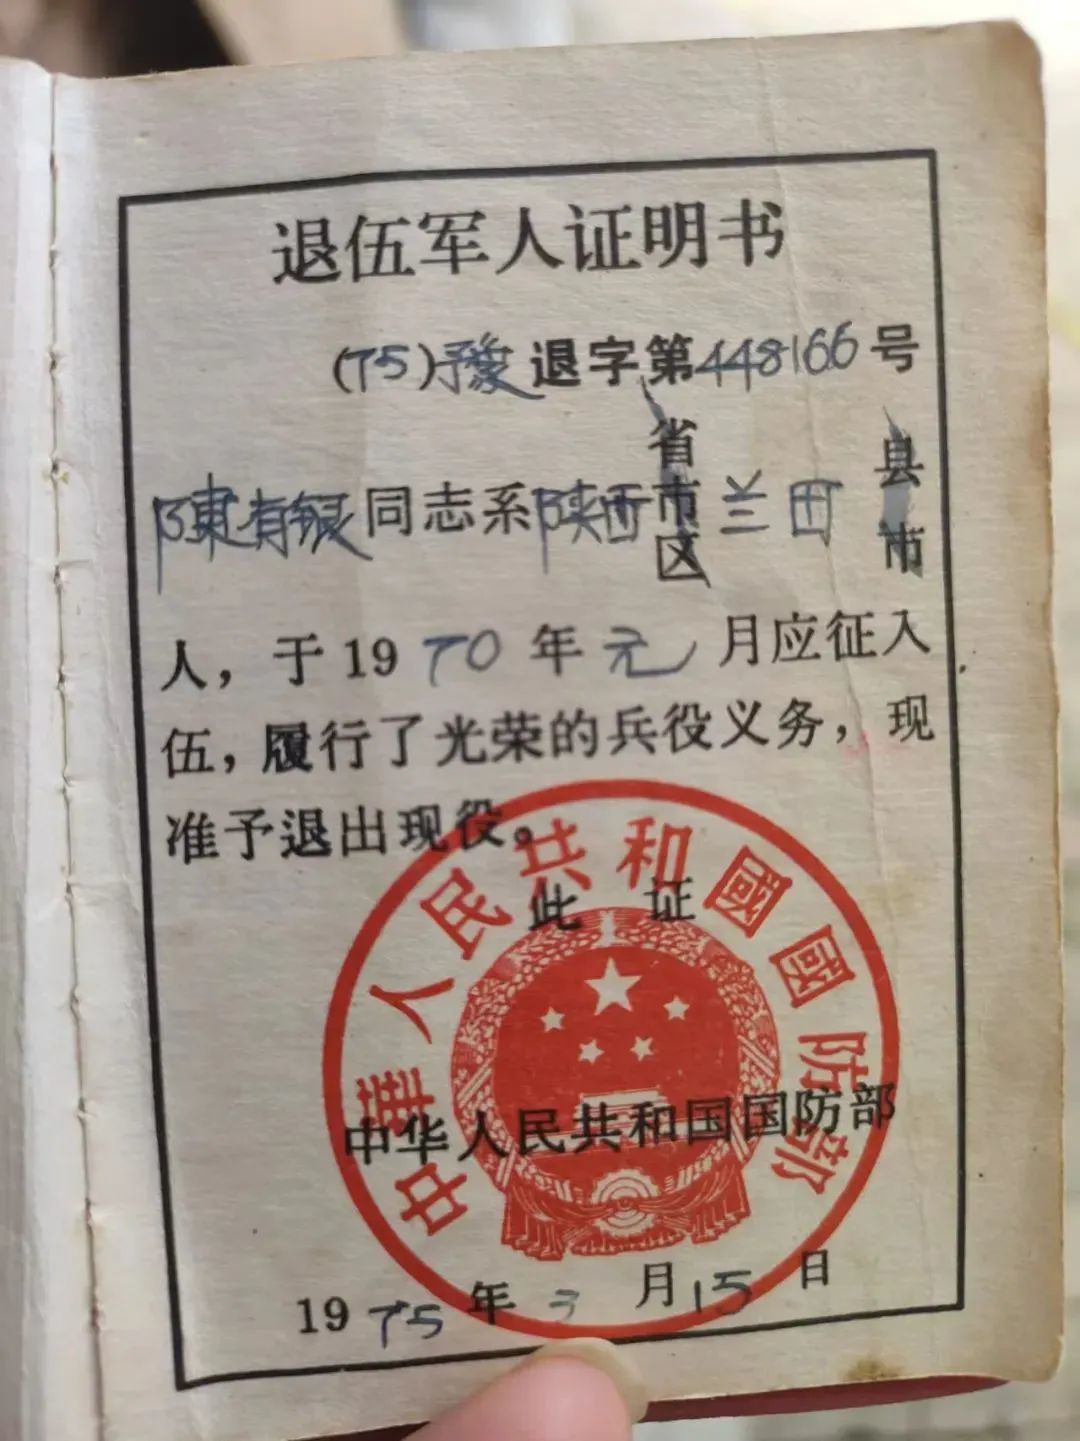 退伍军人证明书
(75)豫退字第448166号
陳有银同志系陕西省市区兰田县市
人，于1970年元月应征入
伍，履行了光荣的兵役义务，现
准予退出现役。
此证
中华人民共和国国防部
中華人民共和國國防部
1975年3月15日